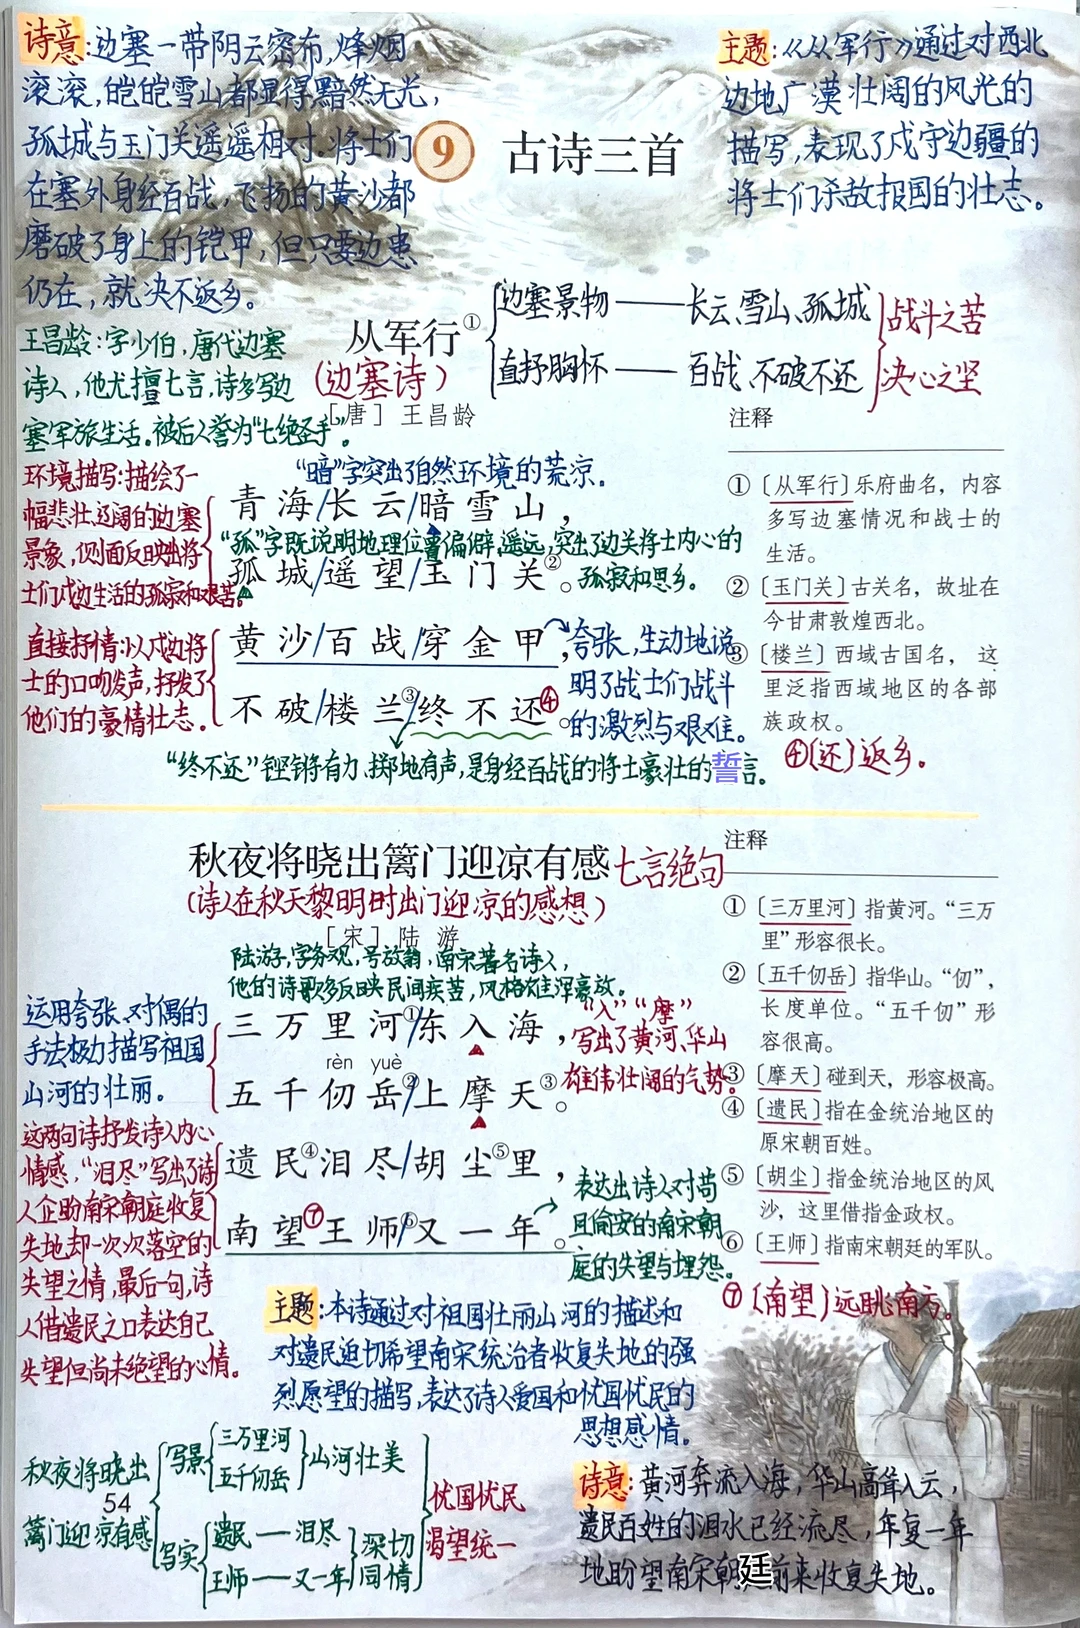 诗意:边塞一带阴云密布,烽烟
滚滚,皑皑雪山都显得黯然无光,
孤城与玉门关遥遥相对.将士们
在塞外身经百战,飞扬的黄沙都
磨破了身上的铠甲,但只要边患
仍在,就决不返乡。
主题:《从军行》通过对西北
边地广漠壮阔的风光的
描写,表现了戍守边疆的
将士们杀敌报国的壮志。
9 古诗三首
王昌龄:字少伯,唐代边塞
诗人,他尤擅七言,诗多写边
塞军旅生活。被后人誉为“七绝圣手”。
从军行①
(边塞诗)
[唐] 王昌龄
边塞景物——长云、雪山、孤城
直抒胸怀——百战、不破不还
战斗之苦
决心之坚
环境描写:描绘了一
幅悲壮辽阔的边塞
景象,侧面反映出将
士们戍边生活的孤寂和艰苦。
“暗”字突出了自然环境的荒凉.
青海/长云/暗雪山,
“孤”字既说明地理位置偏僻、遥远,突出了边关将士内心的
孤城/遥望/玉门关②。孤寂和思乡.
直接抒情:以戍边将
士的口吻发声,抒发了
他们的豪情壮志.
黄沙/百战/穿金甲,
夸张,生动地说
明了战士们战斗
的激烈与艰难。
不破/楼兰③/终不还④。
“终不还”铿锵有力,掷地有声,是身经百战的将士豪壮的誓言.
注释
①〔从军行〕乐府曲名,内容
多写边塞情况和战士的
生活。
②〔玉门关〕古关名,故址在
今甘肃敦煌西北。
③〔楼兰〕西域古国名,这
里泛指西域地区的各部
族政权。
④(还)返乡.
秋夜将晓出篱门迎凉有感 七言绝句
(诗人在秋天黎明时出门迎凉的感想)
[宋] 陆游
陆游,字务观,号放翁,南宋著名诗人,
他的诗歌多反映民间疾苦,风格雄浑豪放.
运用夸张、对偶的
手法极力描写祖国
山河的壮丽。
三万里河①/东入海,
rèn yuè
五千仞岳②/上摩天③。
“入”“摩”
写出了黄河、华山
雄伟壮阔的气势.
这两句诗抒发诗人内心
情感,“泪尽”写出了诗
人企盼南宋朝庭收复
失地却一次次落空的
失望之情,最后一句,诗
人借遗民之口表达自己
失望但尚未绝望的心情。
遗民④泪尽/胡尘⑤里,
南望⑦王师⑥/又一年。
表达出诗人对苟
且偷安的南宋朝
庭的失望与埋怨。
注释
①〔三万里河〕指黄河。“三万
里”形容很长。
②〔五千仞岳〕指华山。“仞”,
长度单位。“五千仞”形
容很高。
③〔摩天〕碰到天,形容极高。
④〔遗民〕指在金统治地区的
原宋朝百姓。
⑤〔胡尘〕指金统治地区的风
沙,这里借指金政权。
⑥〔王师〕指南宋朝廷的军队。
⑦(南望)远眺南方。
主题:本诗通过对祖国壮丽山河的描述和
对遗民迫切希望南宋统治者收复失地的强
烈愿望的描写,表达了诗人爱国和忧国忧民的
思想感情。
秋夜将晓出
篱门迎凉有感
写景
三万里河
五千仞岳
山河壮美
写实
遗民——泪尽
王师——又一年
深切
同情
忧国忧民
渴望统一
54
诗意:黄河奔流入海,华山高耸入云,
遗民百姓的泪水已经流尽,年复一年
地盼望南宋朝廷前来收复失地。